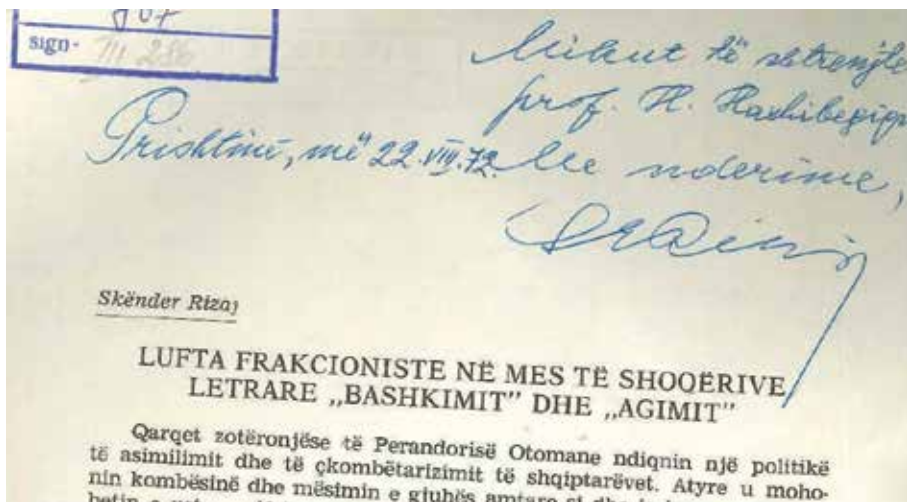 sign- III 286
Mikut të shtrenjtë
prof. H.
Prishtinë, më 22.VIII.72
Me nderime,
Skënder Rizaj
LUFTA FRAKCIONISTE NË MES TË SHOQËRIVE
LETRARE „BASHKIMIT” DHE „AGIMIT”
Qarqet zotëronjëse të Perandorisë Otomane ndiqnin një politikë
të asimilimit dhe të çkombëtarizimit të shqiptarëvet. Atyre u moho-
nin kombësinë dhe mësimin e gjuhës amtare si dhe